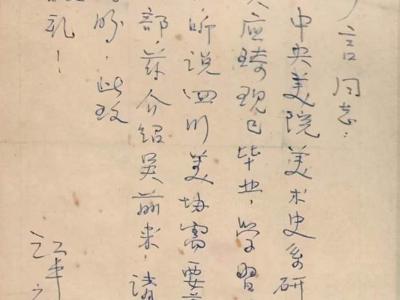 言同志：
中央美院美术史系研
应臻现已毕业，学习
听说四川美协需要
部，兹介绍吴前来，请
盼，此致
礼！
江丰